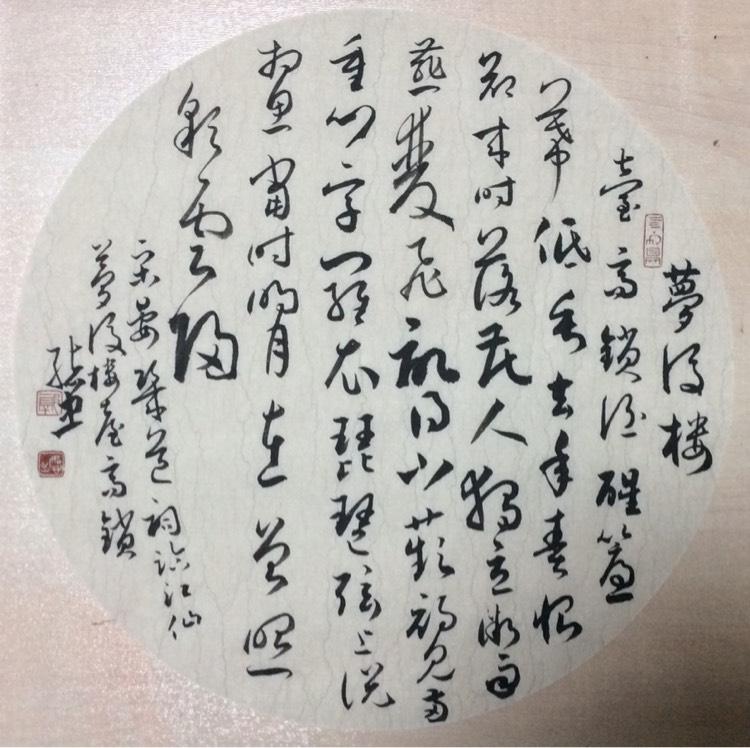 夢後樓
臺高鎖酒醒簾
幕低垂去年春恨
卻來時落花人獨立微雨
燕雙飛記得小蘋初見兩
重心字羅衣琵琶弦上説
相思當時明月在曾照
彩雲歸
宋晏幾道詞臨江仙
夢後樓臺高鎖